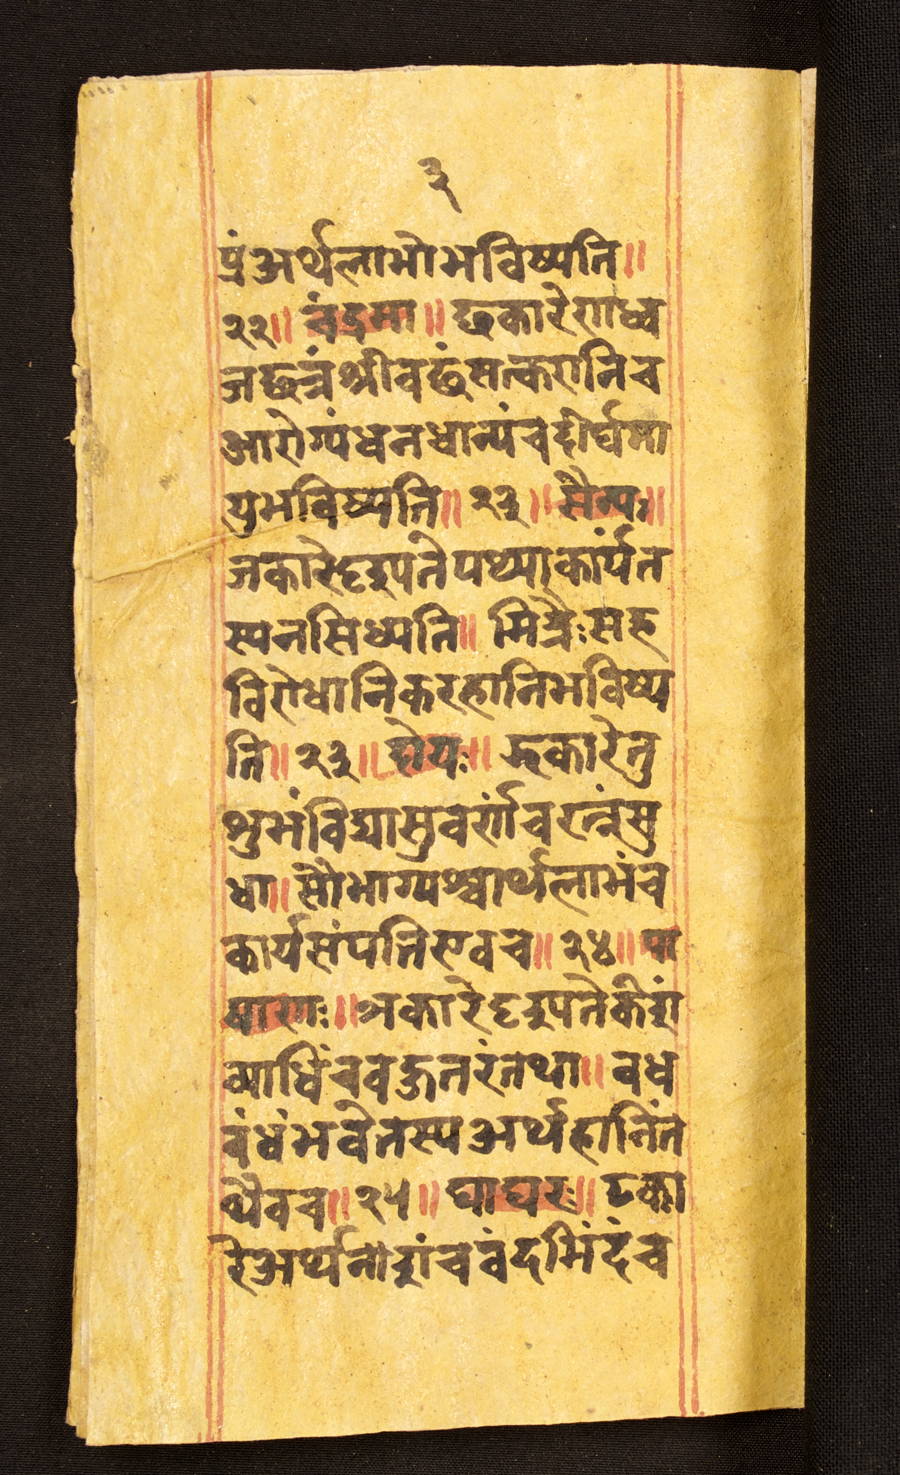 ३
प्रं अर्थलाभो भविष्यति॥
२२॥ चंद्रमा॥ छकारे राध्व
जछत्रं श्रीवछंसत्करानि च
आरोग्यं धनधान्यं च दीर्घमा
युभविष्यति॥ २३॥ सैन्य:॥
जकारे दृरुपते पथ्या कार्यं त
स्य न सिध्यति॥ मित्रै: सह
विरोधानि करहानि भविष्य
ति॥ २३॥ होय:॥ झकारे तु
शुभं विद्यासुवर्णं च रत्नं सु
धा॥ सौभाग्यश्चार्थलाभं च
कार्यसंपति एव च॥ २४॥ पा
षारा:॥ ञकारे दृरुपते केरां
व्याधिं च वज्रजनरं तथा॥ वध
वंधं भवेतस्य अर्थहानिं त
थैव च॥ २५॥ घाघर:॥ टका
रे अर्थनारां च वंदमिंदं च